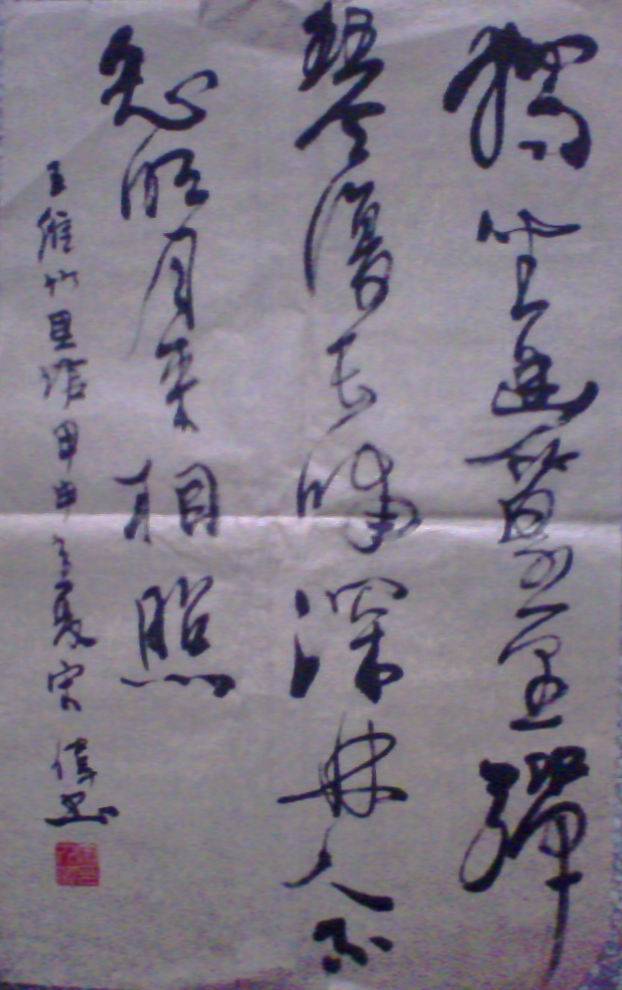 獨坐幽篁裏彈
琴復長嘯深林人不
知明月來相照
王維竹里館甲申夏宋偉書